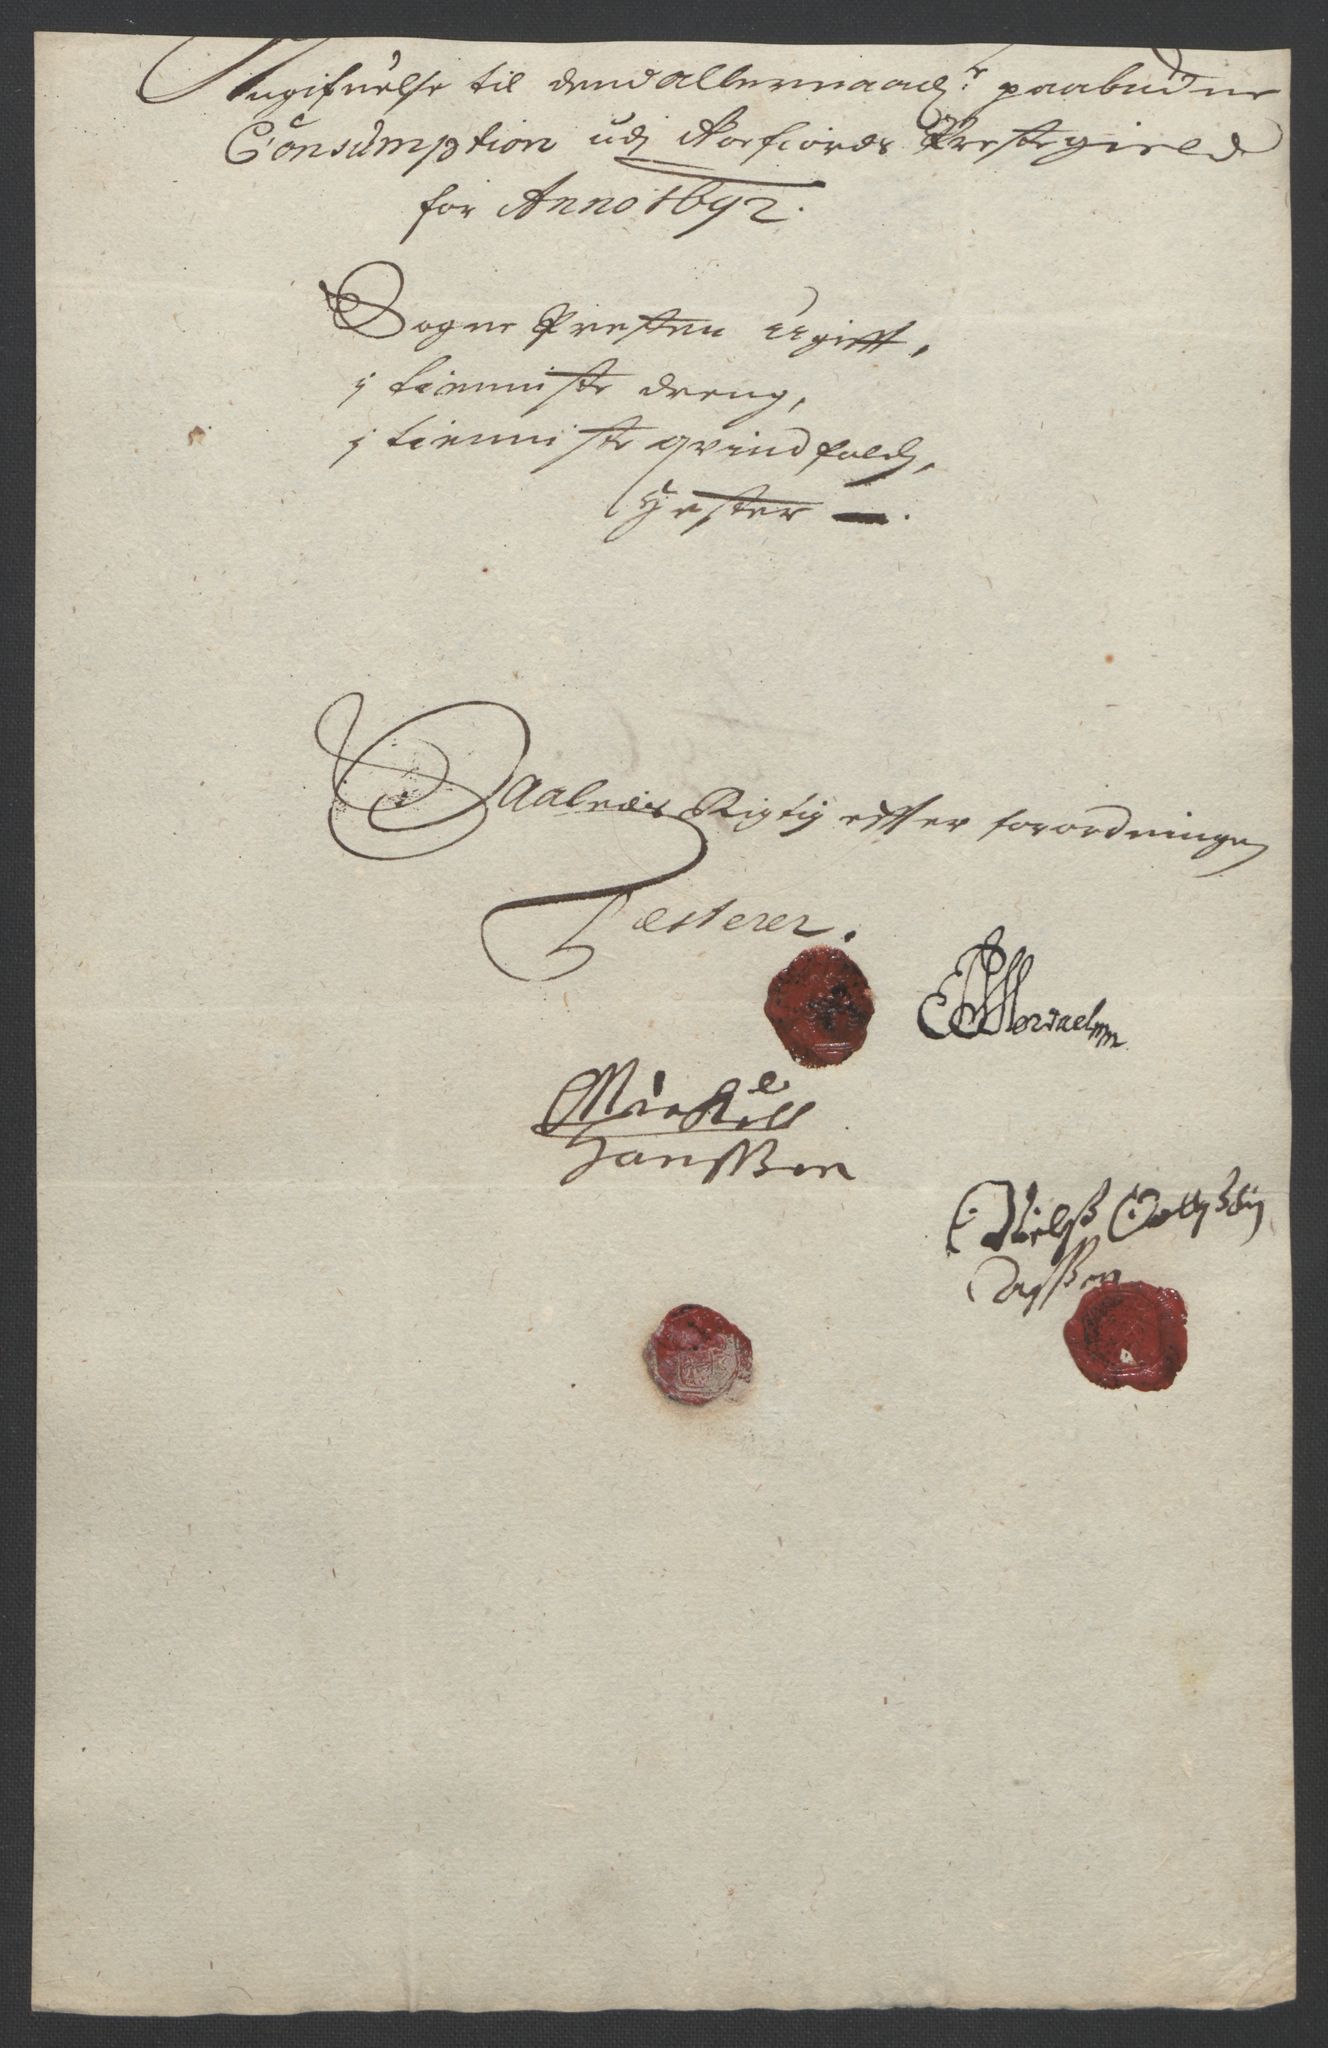 Angifuelse til dend allernaadr. paabudne
Consumption udj Korfiords Prestegield
for Anno 1692.
Sogne Presten Ugifft,
j tienniste dreng,
j tienniste qvindfolch,
Hester —.
Saaledes Rigtig effter forordningen
Testerer.
Mickell
Hanssøn
Nielß